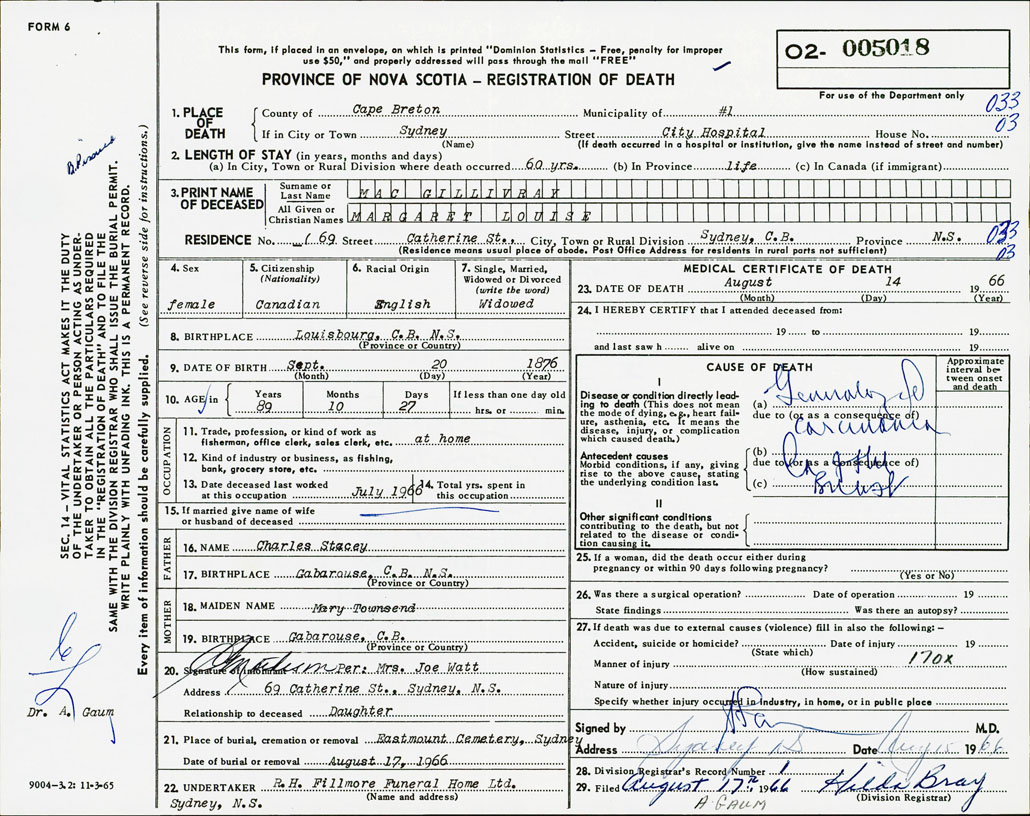 FORM 6
This form, if placed in an envelope, on which is printed "Dominion Statistics – Free, penalty for improper
use $50," and properly addressed will pass through the mail "FREE"
PROVINCE OF NOVA SCOTIA – REGISTRATION OF DEATH
O2- 005018
For use of the Department only
033
03
1. PLACE OF DEATH
County of Cape Breton Municipality of #1
If in City or Town Sydney Street City Hospital House No.
(Name) (If death occurred in a hospital or institution, give the name instead of street and number)
2. LENGTH OF STAY (in years, months and days)
(a) In City, Town or Rural Division where death occurred 60 yrs. (b) In Province life (c) In Canada (if immigrant)
3. PRINT NAME OF DECEASED
Surname or Last Name MAC GILLIVRAY
All Given or Christian Names MARGARET LOUISE
RESIDENCE No. 69 Street Catherine St., City, Town or Rural Division Sydney, C.B. Province N.S. 033
03
(Residence means usual place of abode. Post Office Address for residents in rural parts not sufficient)
4. Sex
female
5. Citizenship
(Nationality)
Canadian
6. Racial Origin
English
7. Single, Married,
Widowed or Divorced
(write the word)
Widowed
8. BIRTHPLACE Louisbourg, C.B. N.S.
(Province or Country)
9. DATE OF BIRTH Sept. 20 1876
(Month) (Day) (Year)
10. AGE in
Years Months Days If less than one day old
89 10 27 hrs. or min.
OCCUPATION
11. Trade, profession, or kind of work as
fisherman, office clerk, sales clerk, etc. at home
12. Kind of industry or business, as fishing,
bank, grocery store, etc.
13. Date deceased last worked
at this occupation July 1966
14. Total yrs. spent in
this occupation
15. If married give name of wife
or husband of deceased
FATHER
16. NAME Charles Stacey
17. BIRTHPLACE Gabarouse, C.B. N.S.
(Province or Country)
MOTHER
18. MAIDEN NAME Mary Townsend
19. BIRTHPLACE Gabarouse, C.B.
(Province or Country)
20. Signature of informant Per: Mrs. Joe Watt
Address 69 Catherine St., Sydney, N.S.
Relationship to deceased Daughter
21. Place of burial, cremation or removal Eastmount Cemetery, Sydney
Date of burial or removal August 17, 1966
22. UNDERTAKER R.H. Fillmore Funeral Home Ltd.
(Name and address)
Sydney, N.S.
MEDICAL CERTIFICATE OF DEATH
23. DATE OF DEATH August 14 19 66
(Month) (Day) (Year)
24. I HEREBY CERTIFY that I attended deceased from:
19 to 19
and last saw h alive on 19
CAUSE OF DEATH
Approximate
interval be-
tween onset
and death
I
Disease or condition directly lead-
ing to death (This does not mean
the mode of dying, e.g., heart fail-
ure, asthenia, etc. It means the
disease, injury, or complication
which caused death.)
(a) Generalized
due to (or as a consequence of)
Carcinoma
Antecedent causes
Morbid conditions, if any, giving
rise to the above cause, stating
the underlying condition last.
(b)
due to (or as a consequence of)
Ca of the
(c) Breast
II
Other significant conditions
contributing to the death, but not
related to the disease or condi-
tion causing it.
25. If a woman, did the death occur either during
pregnancy or within 90 days following pregnancy?
(Yes or No)
26. Was there a surgical operation? Date of operation 19
State findings Was there an autopsy?
27. If death was due to external causes (violence) fill in also the following: –
Accident, suicide or homicide? Date of injury 19
(State which)
Manner of injury 170X
(How sustained)
Nature of injury
Specify whether injury occurred in industry, in home, or in public place
Signed by M.D.
Address Sydney NS Date Aug 15 1966
28. Division Registrar's Record Number 1
29. Filed August 17th 1966 Hilda Bray
(Division Registrar)
A GAUM
SEC. 14 – VITAL STATISTICS ACT MAKES IT THE DUTY
OF THE UNDERTAKER OR PERSON ACTING AS UNDER-
TAKER TO OBTAIN ALL THE PARTICULARS REQUIRED
IN THE "REGISTRATION OF DEATH" AND TO FILE THE
SAME WITH THE DIVISION REGISTRAR WHO SHALL ISSUE THE BURIAL PERMIT.
WRITE PLAINLY WITH UNFADING INK. THIS IS A PERMANENT RECORD.
Every item of information should be carefully supplied. (See reverse side for instructions.)
Dr. A. Gaum
9004–3.2: 11-3-65